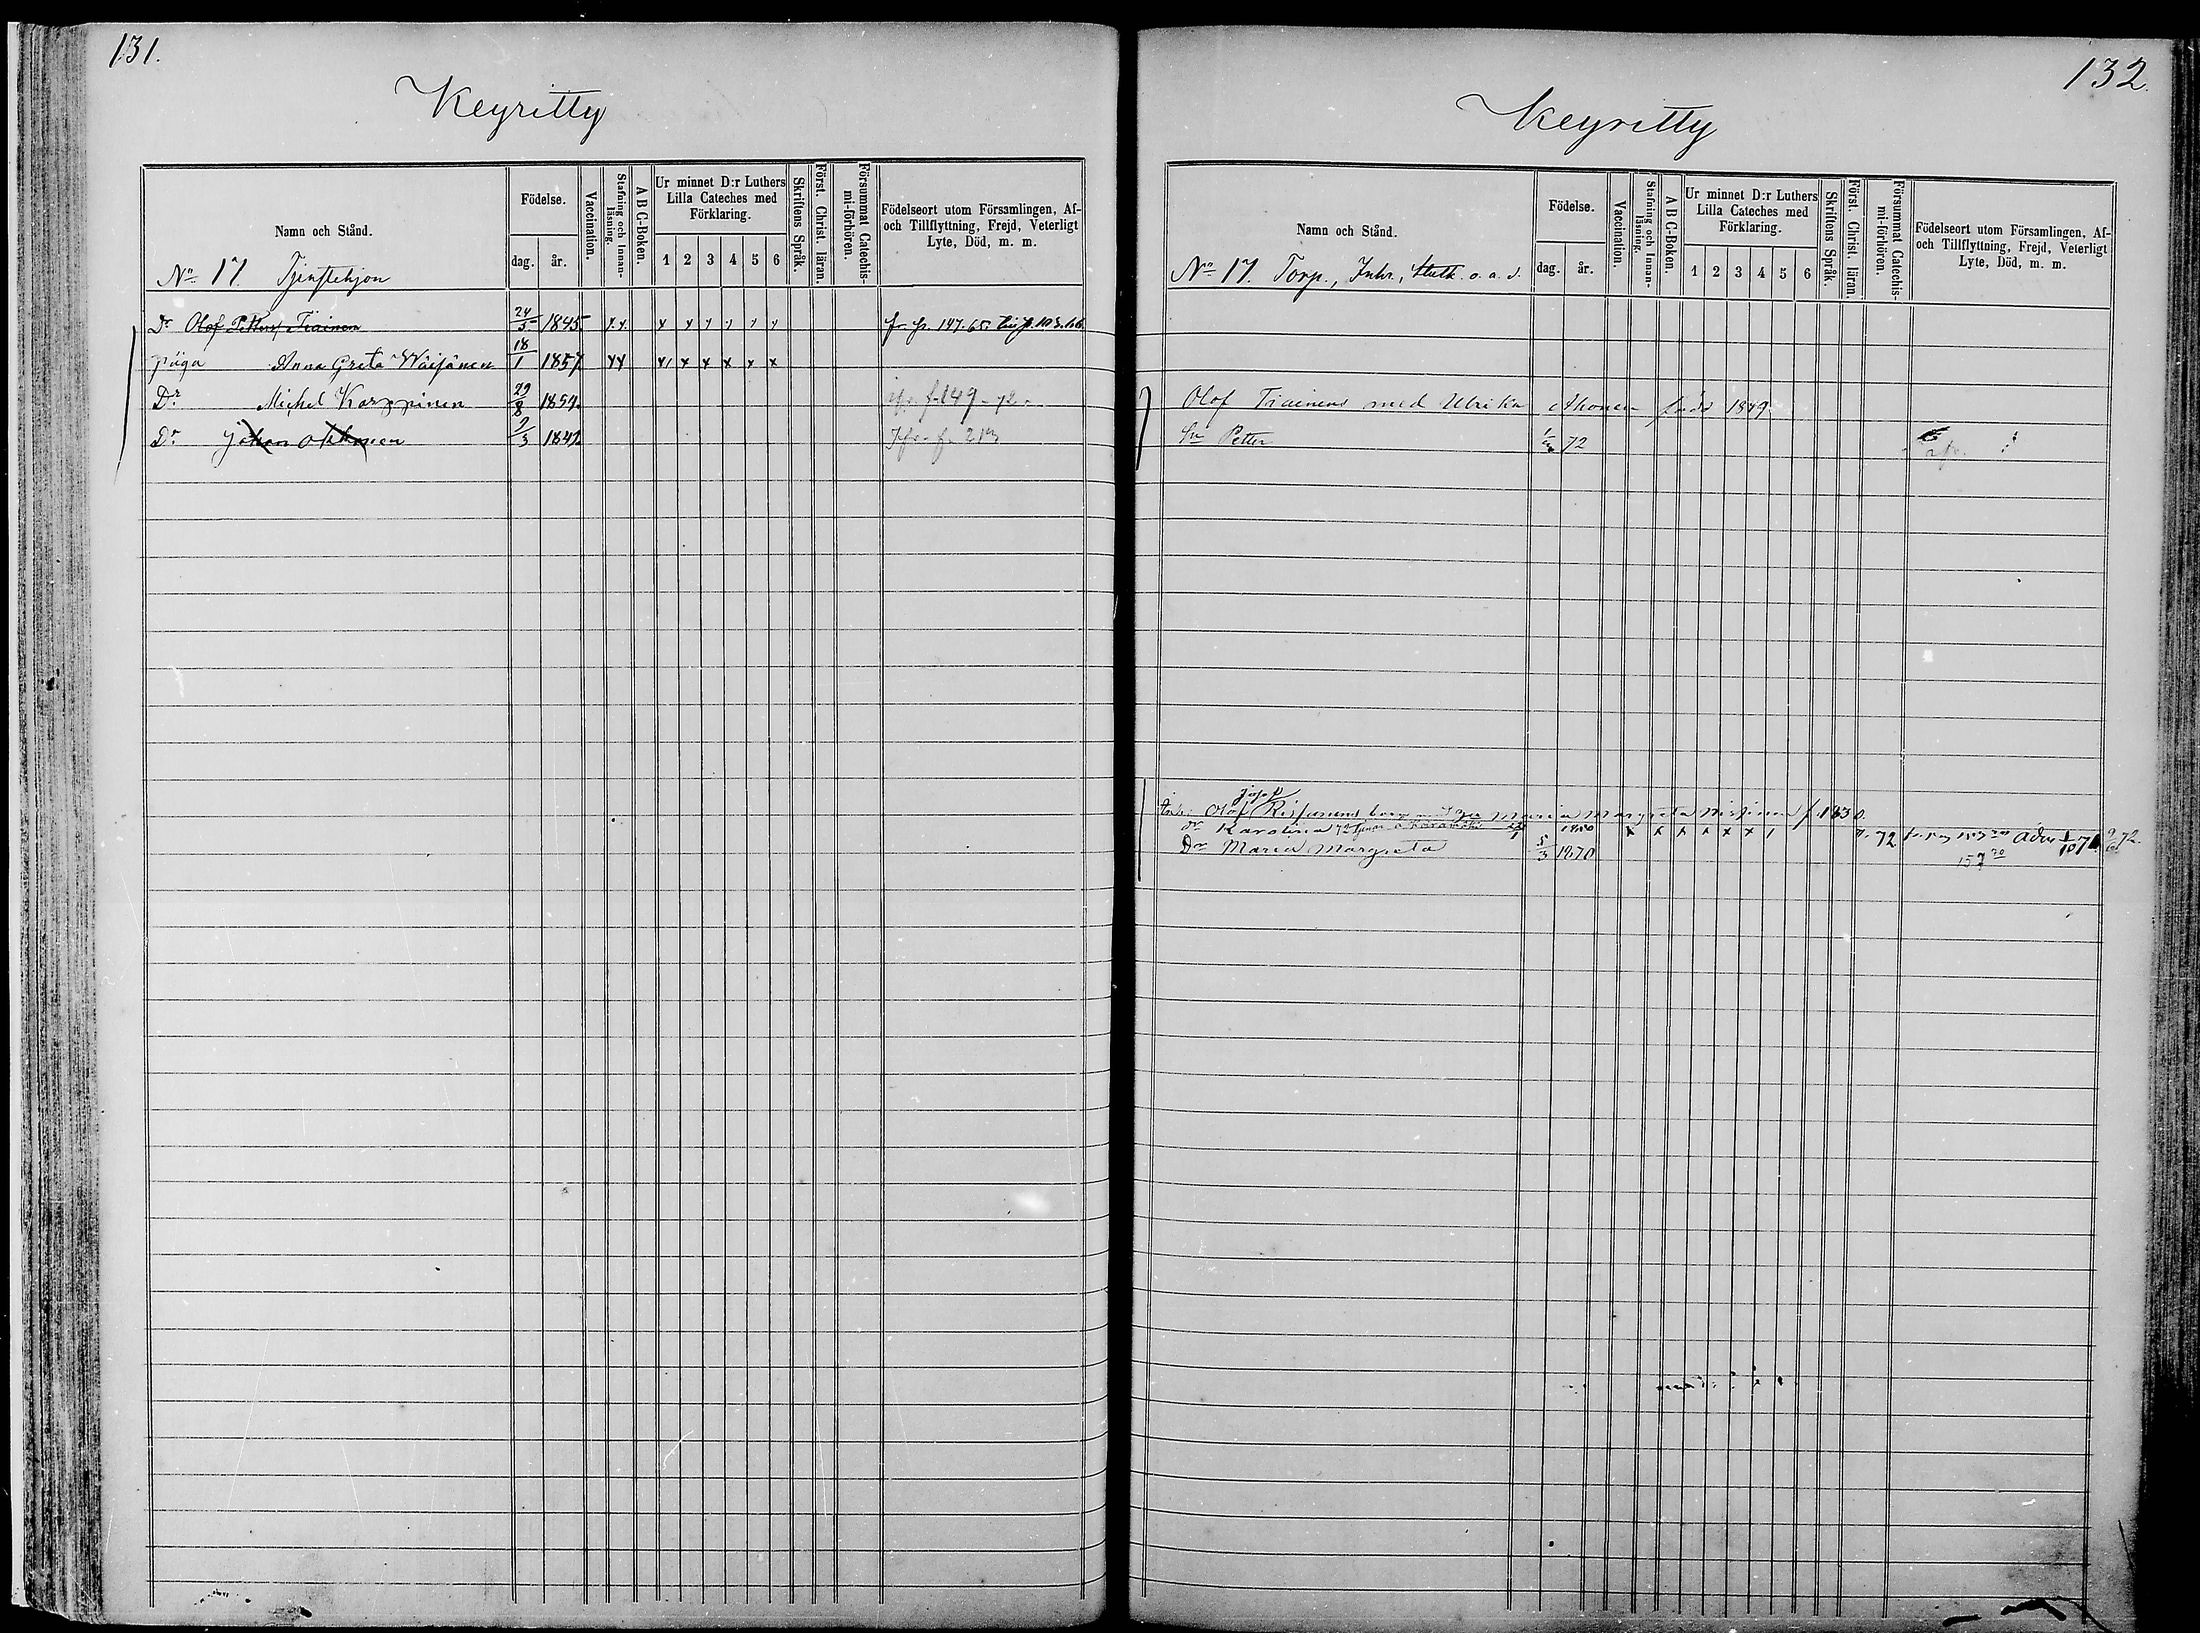 131.
Keyritty
Namn och Stånd.
Födelse.
dag. år.
Vaccination.
Stafning och Innan-läsning.
A B C-Boken.
Ur minnet D:r Luthers Lilla Cateches med Förklaring.
1 2 3 4 5 6
Skriftens Språk.
Först. Christ. läran.
Försummat Catechis-mi-förhören.
Födelseort utom Församlingen, Af- och Tillflyttning, Frejd, Veterligt Lyte, Död, m. m.
No 17. Tjenstehjon
Dr Olof Pettersf. Tiainen 24/5 1845 x x x x x x x x fr. p. 147. 65.
piga Anna Greta Wäisänen 18/1 1857 x x x x x x x x
Dr Michel Karppinen 29/8 1859. f. 149 - 72.
Dr Johan 2/3 1842
132.
Keyritty
Namn och Stånd.
Födelse.
dag. år.
Vaccination.
Stafning och Innan-läsning.
A B C-Boken.
Ur minnet D:r Luthers Lilla Cateches med Förklaring.
1 2 3 4 5 6
Skriftens Språk.
Först. Christ. läran.
Försummat Catechis-mi-förhören.
Födelseort utom Församlingen, Af- och Tillflyttning, Frejd, Veterligt Lyte, Död, m. m.
No 17. Torp., Inhs., Statk. o. a. d.
Olof Tiainens med Ulrika Ahonen född 1849
Sn Petter 72
Josef
Olof Maria Margreta f. 1830.
dr Karolina 1850 x x x x x x
Dr Maria Margreta 5/3 1870 72